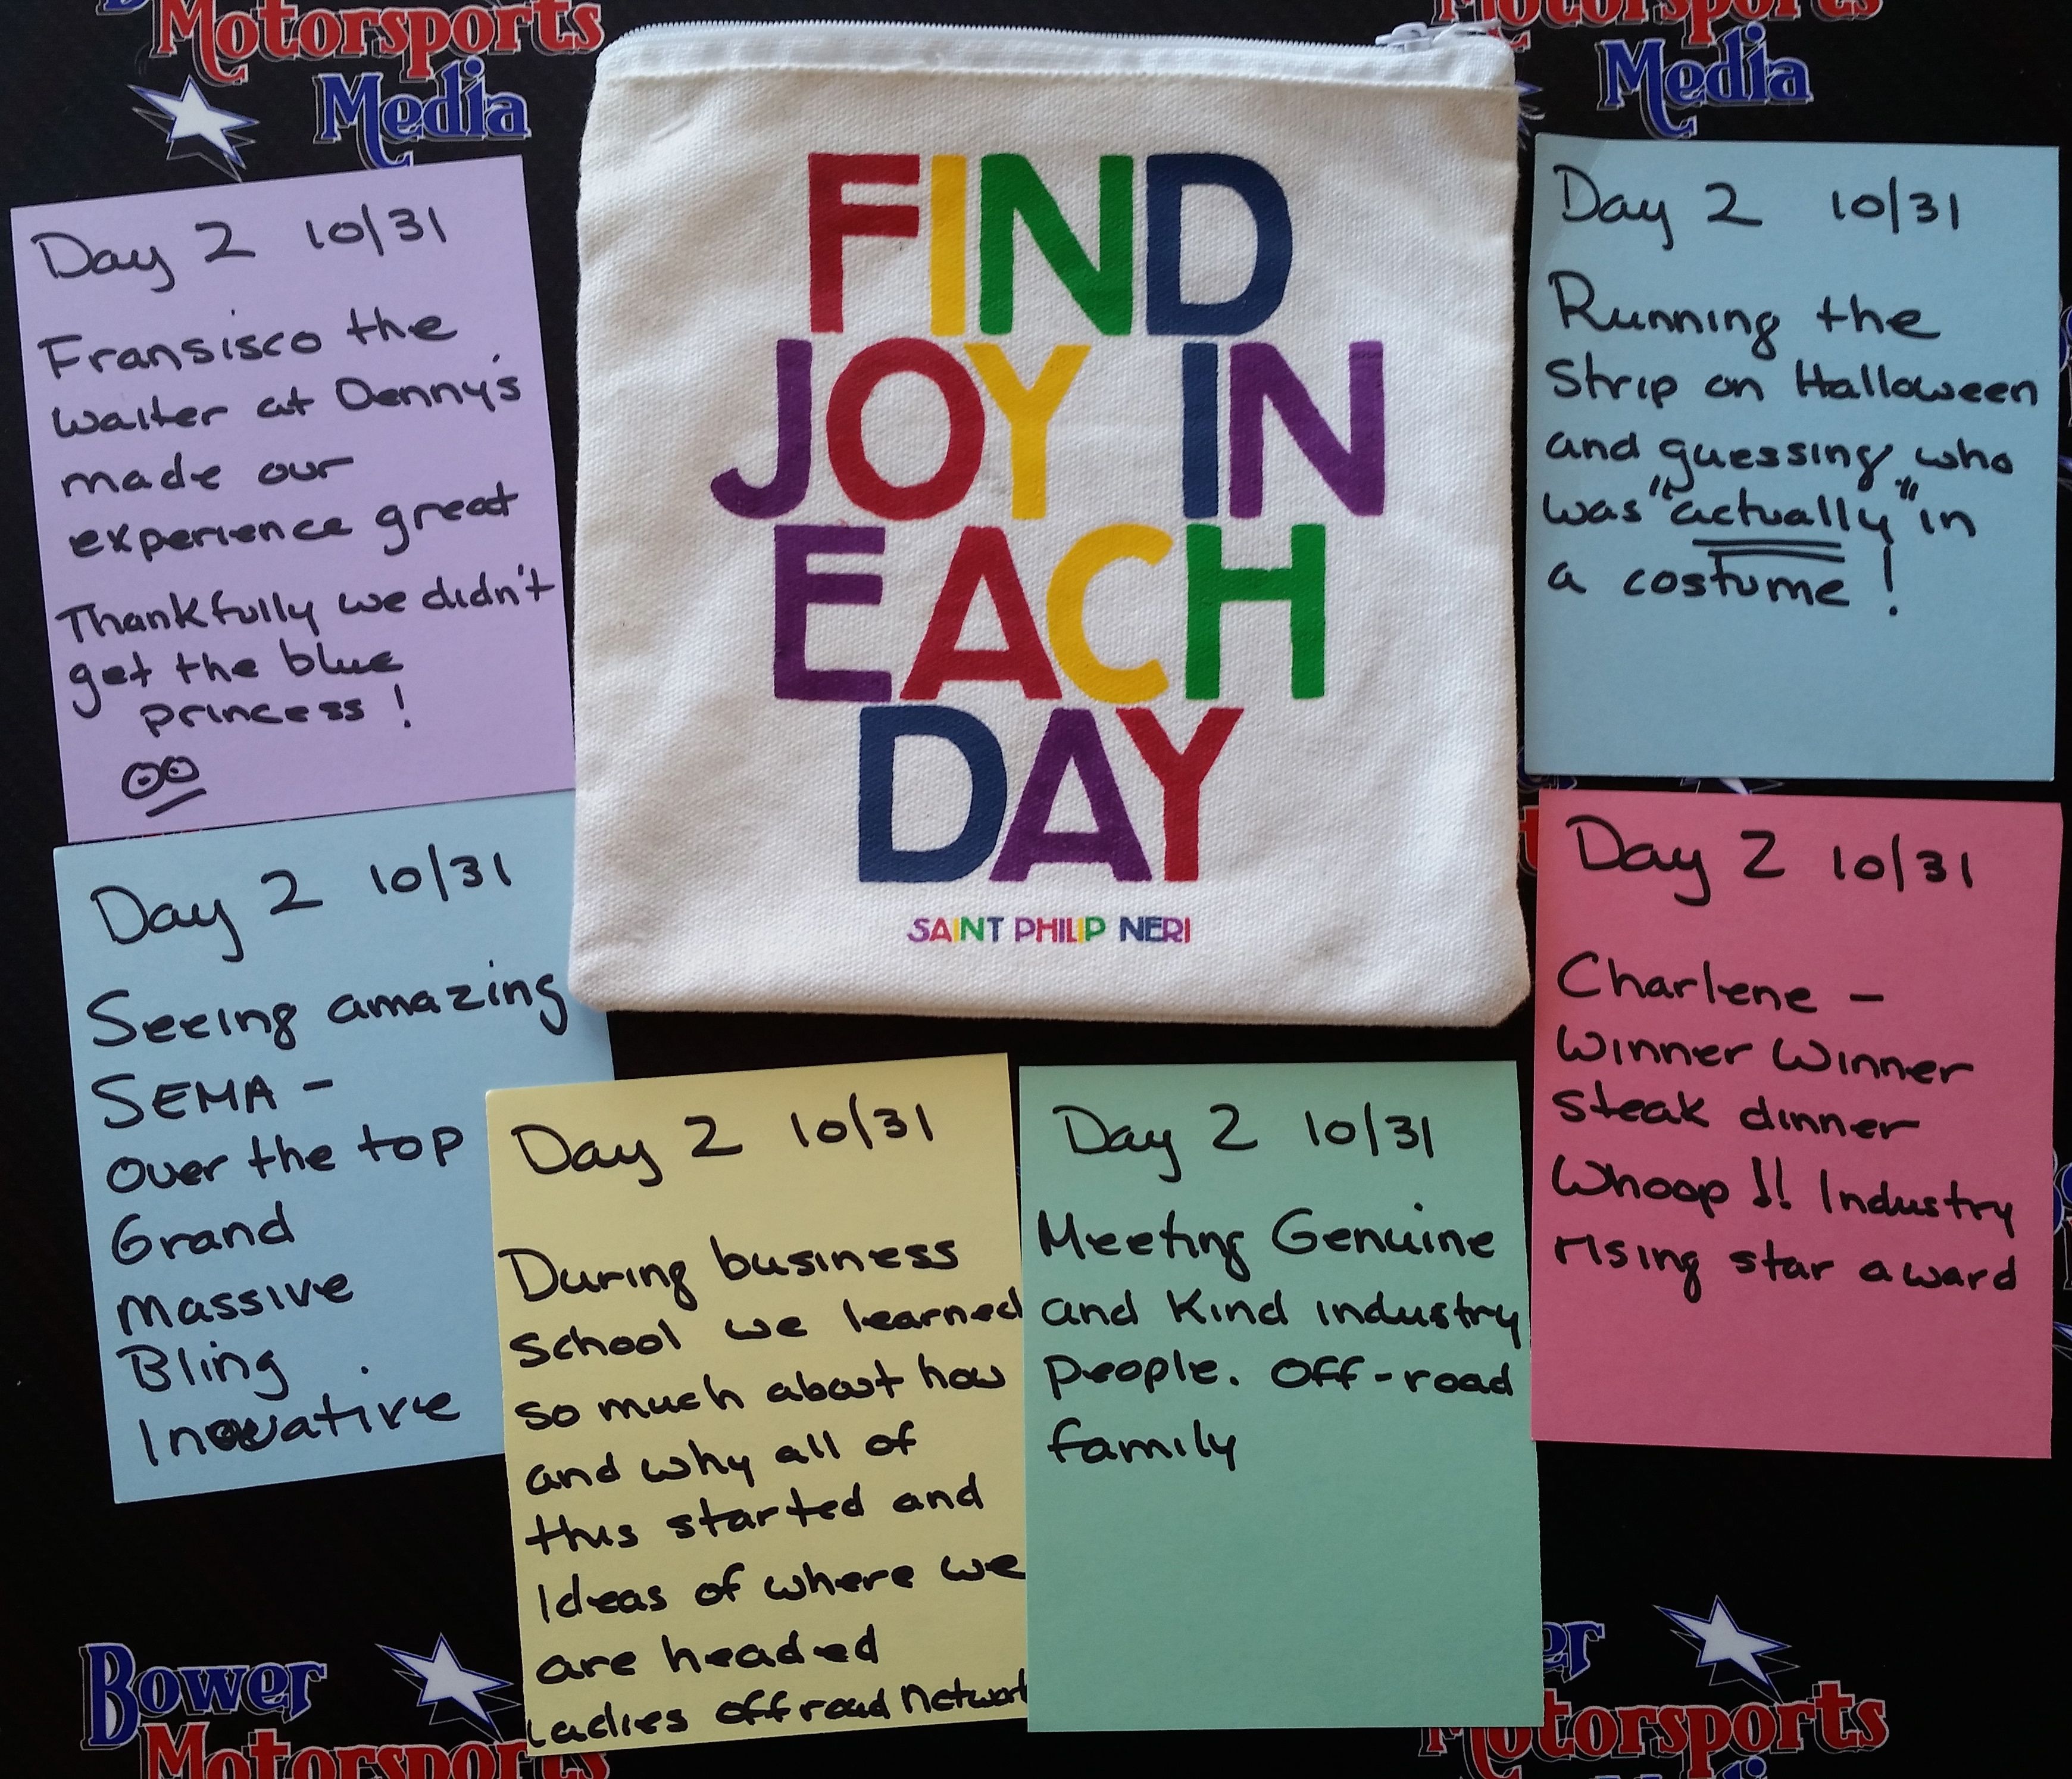 Motorsports
Media
Motorsports
Media
FIND
JOY IN
EACH
DAY
SAINT PHILIP NERI
Day 2 10/31
Fransisco the
waiter at Denny's
made our
experience great
Thankfully we didn't
get the blue
princess!
Day 2 10/31
Running the
Strip on Halloween
and guessing who
was "actually" in
a costume!
Day 2 10/31
Seeing amazing
SEMA -
over the top
Grand
Massive
Bling
Inovative
Day 2 10/31
During business
school we learned
so much about how
and why all of
this started and
Ideas of where we
are headed
Ladies offroad Network
Day 2 10/31
Meeting Genuine
and Kind industry
people. Off-road
family
Day 2 10/31
Charlene -
Winner Winner
steak dinner
Whoop !! Industry
rising star award
Bower
Motorsports
er
Motorsports
Media